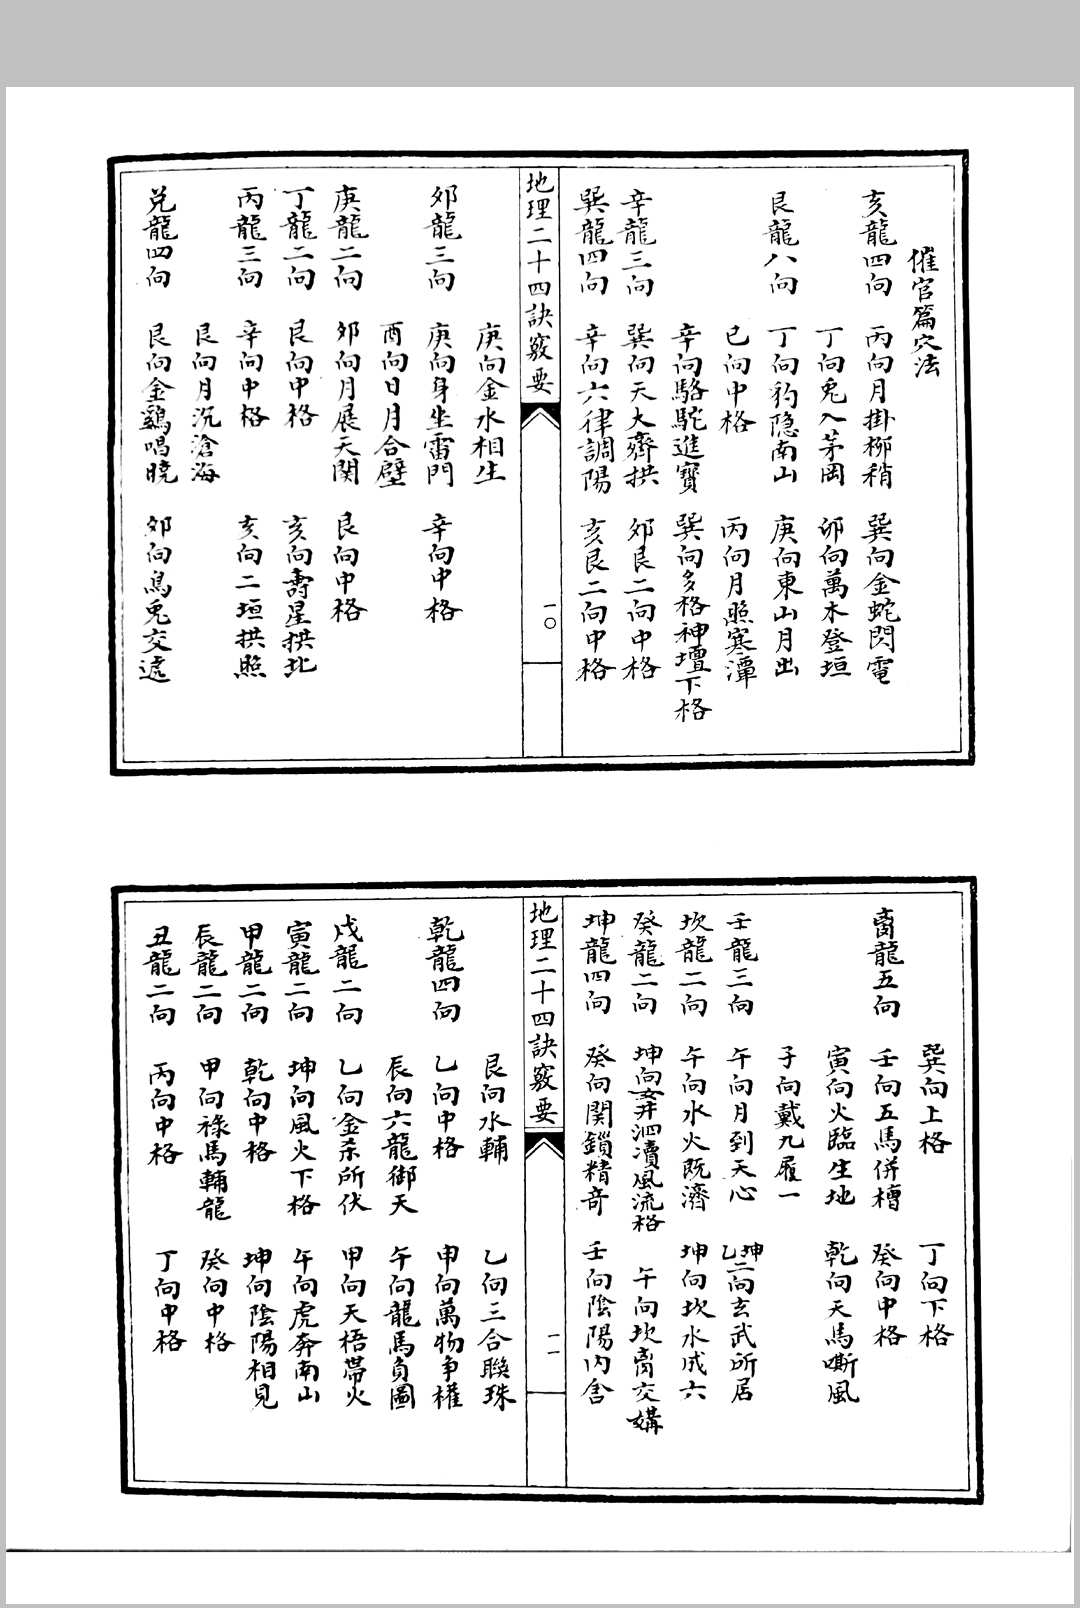 催官篇穴法
亥龍四向　丙向月掛柳稍　巽向金蛇閃電
丁向兎入茅岡　卯向萬木登垣
艮龍八向　丁向豹隐南山　庚向東山月出
巳向中格　丙向月照寒潭
辛向駱駝進寶　巽向多格神壇下格
辛龍三向　巽向天大齊拱　夘艮二向中格
巽龍四向　辛向六律調陽　亥艮二向中格
地理二十四訣竅要　一〇
庚向金水相生
夘龍三向　庚向身坐雷門　辛向中格
酉向日月合璧
庚龍二向　夘向月展天関　艮向中格
丁龍二向　艮向中格　亥向壽星拱北
丙龍三向　辛向中格　亥向二垣拱照
艮向月沉滄海
兑龍四向　艮向金鷄唱曉　夘向烏兎交遞
巽向上格　丁向下格
离龍五向　壬向五馬併槽　癸向中格
寅向火臨生地　乾向天馬嘶風
子向戴九履一
壬龍三向　午向月到天心　坤乙二向玄武所居
坎龍二向　午向水火既濟　坤向坎水成六
癸龍二向　坤向弄泗瀆風流格　午向坎离交媾
坤龍四向　癸向関鎖精奇　壬向陰陽内含
地理二十四訣竅要　一一
艮向水輔　乙向三合聯珠
乾龍四向　乙向中格　申向萬物争權
辰向六龍御天　午向龍馬負圖
戌龍二向　乙向金杀所伏　甲向天梧帶火
寅龍二向　坤向風火下格　午向虎奔南山
甲龍二向　乾向中格　坤向陰陽相見
辰龍二向　甲向祿馬輔龍　癸向中格
丑龍二向　丙向中格　丁向中格